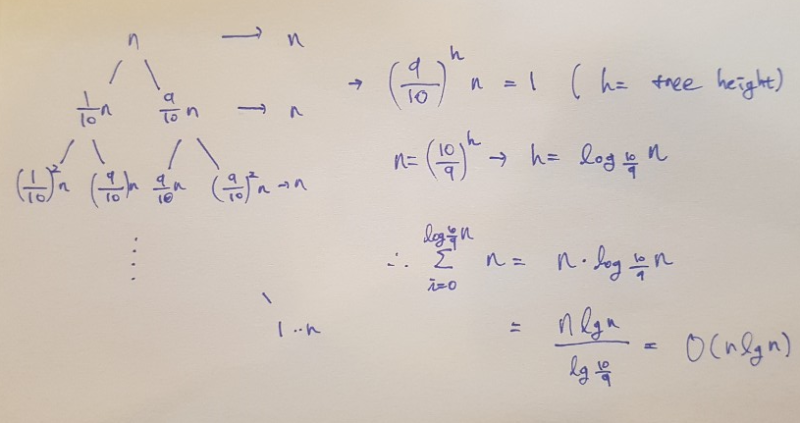 n → n
1/10 n 9/10 n → n
(1/10)² n (9/10) n 9/10 n (9/10)² n → n
⋮
1 ·· n
→ (9/10)^h n = 1 ( h = tree height)
n = (10/9)^h → h = log_{10/9} n
∴ Σ_{i=0}^{log_{10/9} n} n = n · log_{10/9} n
= n lg n / lg 10/9 = O(n lg n)